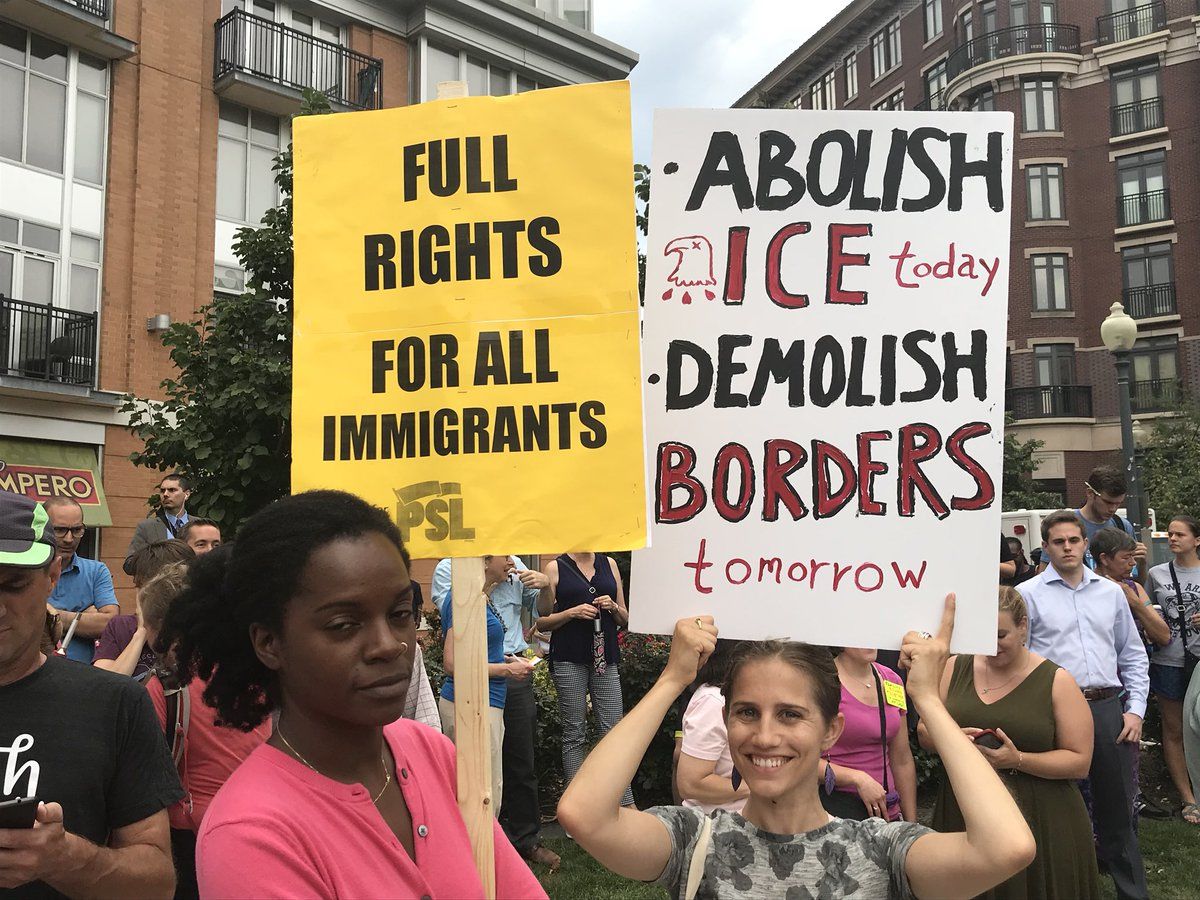 FULL
RIGHTS
FOR ALL
IMMIGRANTS
PSL
• ABOLISH
ICE today
• DEMOLISH
BORDERS
tomorrow
MPERO
h